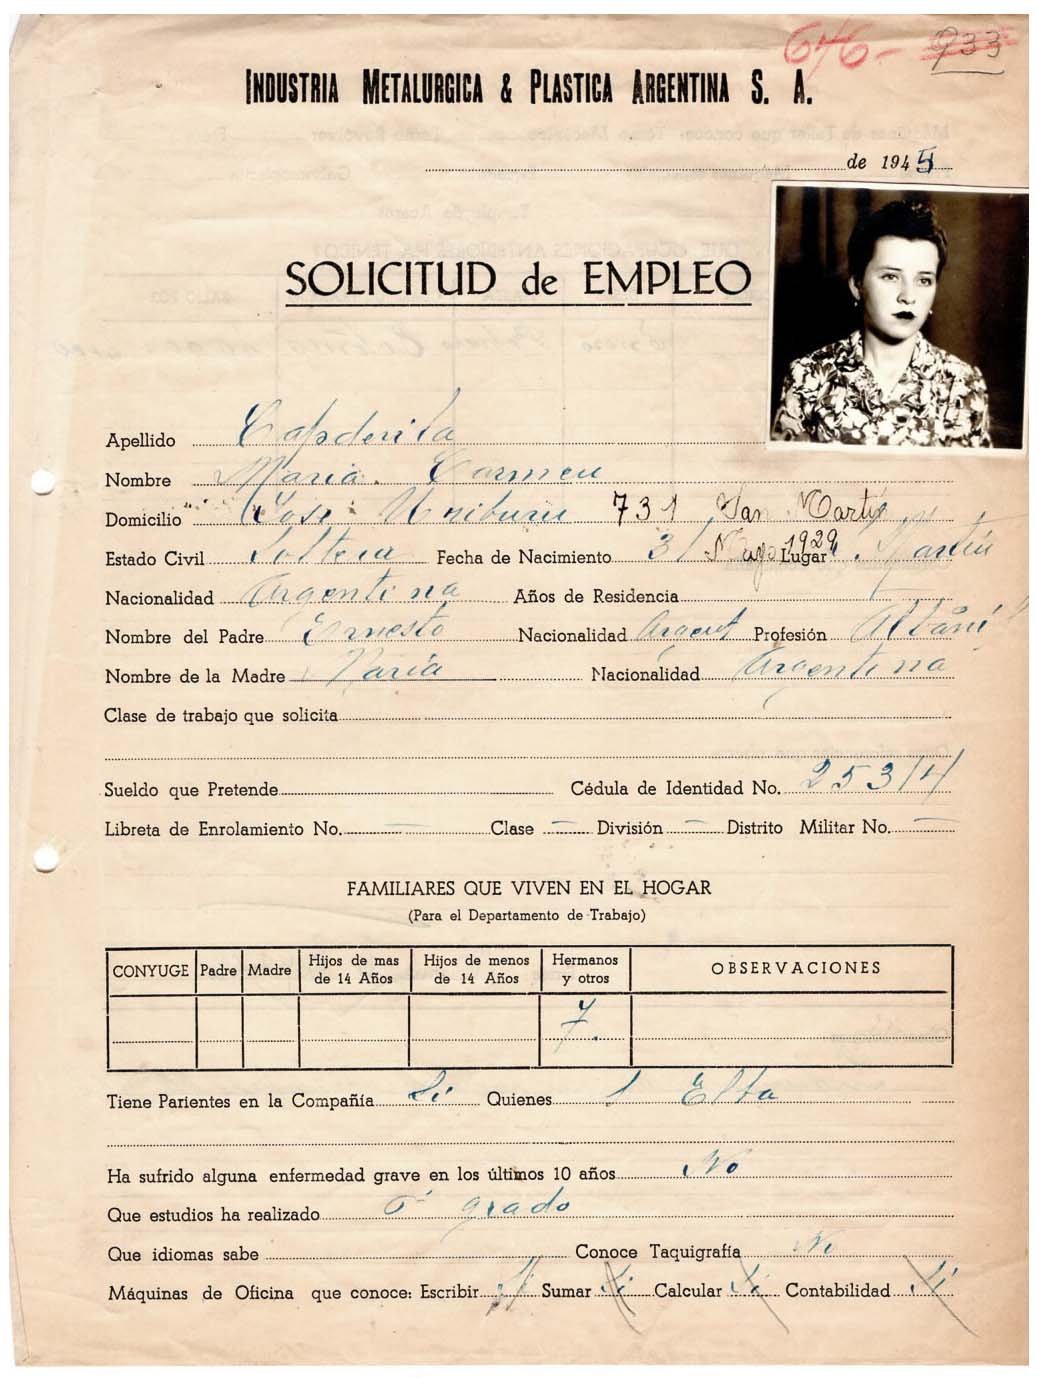 646 - 933
INDUSTRIA METALURGICA & PLASTICA ARGENTINA S. A.
de 1945
SOLICITUD de EMPLEO
Apellido Capdevila
Nombre Maria Carmen
Domicilio José Uriburu 731 San Martín
Estado Civil Soltera Fecha de Nacimiento 31 Mayo 1929 Lugar S. Martín
Nacionalidad Argentina Años de Residencia
Nombre del Padre Ernesto Nacionalidad Argent Profesión Albañil
Nombre de la Madre María Nacionalidad Argentina
Clase de trabajo que solicita
Sueldo que Pretende Cédula de Identidad No. 25314
Libreta de Enrolamiento No. — Clase — División — Distrito Militar No. —
FAMILIARES QUE VIVEN EN EL HOGAR
(Para el Departamento de Trabajo)
CONYUGE Padre Madre Hijos de mas de 14 Años Hijos de menos de 14 Años Hermanos y otros OBSERVACIONES
7.
Tiene Parientes en la Compañía Si Quienes 1 Elba
Ha sufrido alguna enfermedad grave en los últimos 10 años No
Que estudios ha realizado 6º grado
Que idiomas sabe Conoce Taquigrafía No
Máquinas de Oficina que conoce: Escribir Si Sumar Si Calcular Si Contabilidad Si